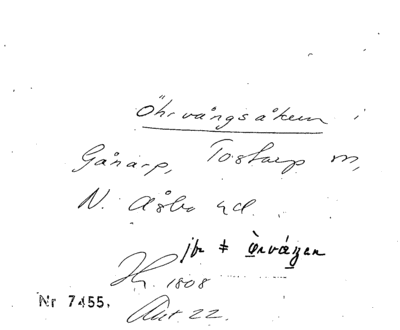 Öhrvångsåkern i
Gånarp, Tostarp m,
N. Åsbo hd.
jfr ‡ Örvången
1808
Nr 7455. Akt 22.